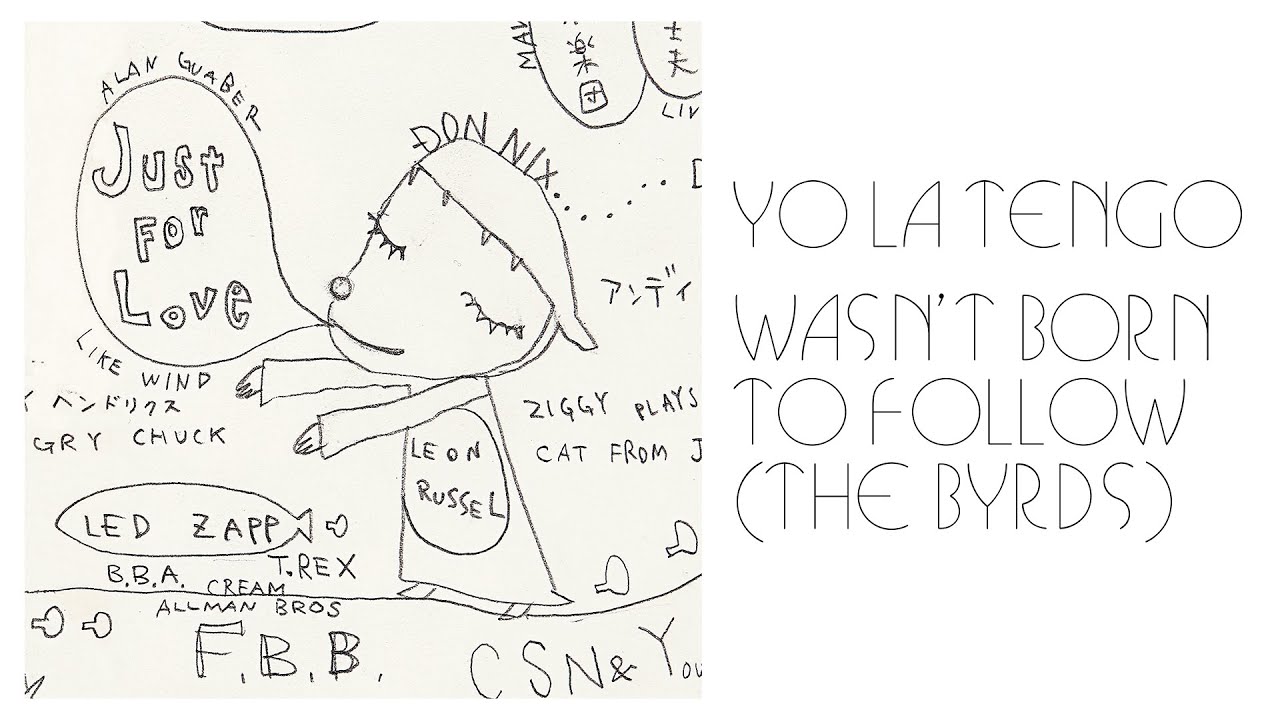 ALAN GUABER
Just
For
Love
LIKE WIND
DON NIX
楽団
夫
LIV
MAV
アンディ
ヘンドリクス
GRY CHUCK
ZIGGY PLAYS
CAT FROM J
LEON
RUSSEL
LED ZAPP
T.REX
B.B.A.
CREAM
ALLMAN BROS
F.B.B.
CSN & You
YO LA TENGO
WASN'T BORN
TO FOLLOW
(THE BYRDS)